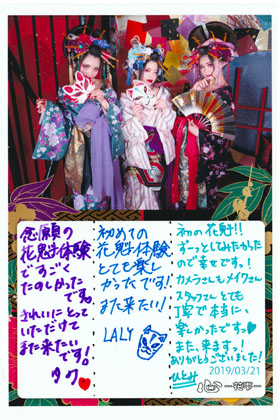 念願の
花魁体験
ですごく
たのしかった
です。
きれいにとって
いただけて
また来たい
です!
タク
初めての
花魁体験
とても楽し
かったです!
また来たい!
LALY
初の花魁!!
ずーっとしてみたかった
ので幸せです!
カメラさんもメイクさん
スタッフさんとても
丁寧で本当に
楽しかったです。
また、来ます。!
ありがとうございました!
ひとみ
2019/03/21